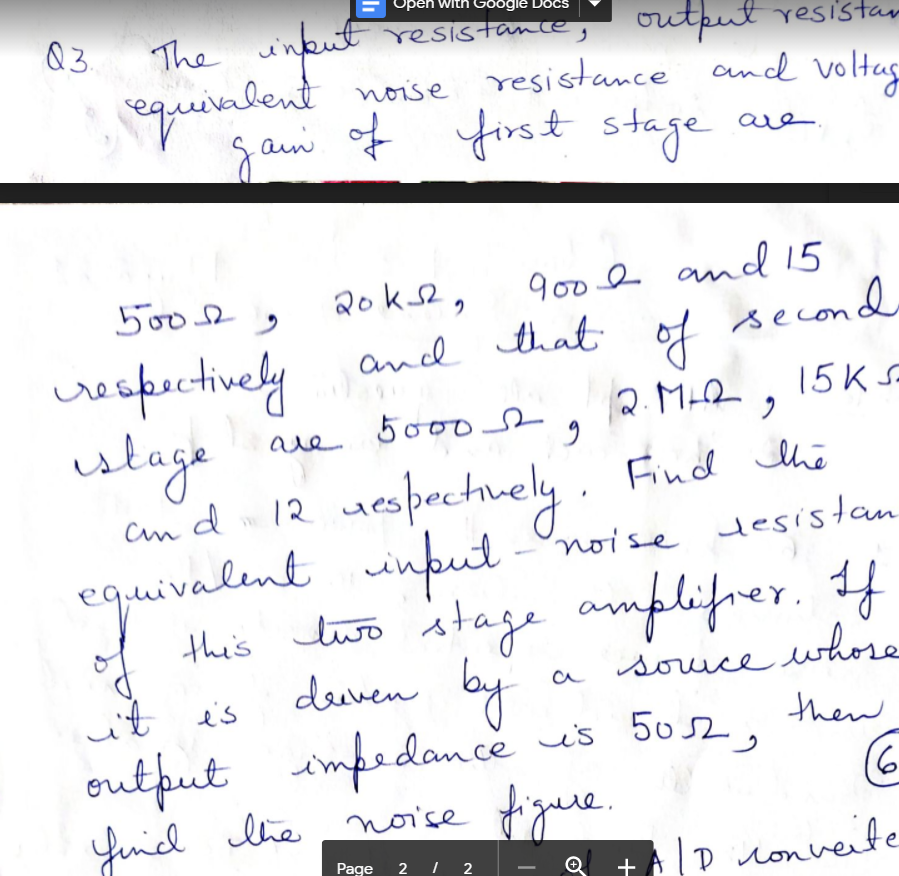 Open with Google Docs
Q3. The input resistance, output resistan
equivalent noise resistance and voltag
gain of first stage are.
500Ω, 20kΩ, 900Ω and 15
respectively and that of second
stage are 5000Ω, 2.MΩ, 15KΩ
and 12 respectively. Find the
equivalent input-noise resistan
of this two stage amplifier. If
it is driven by a source whose
output impedance is 50Ω, then
(6
find the noise figure.
A/D converte
Page 2 / 2 — +